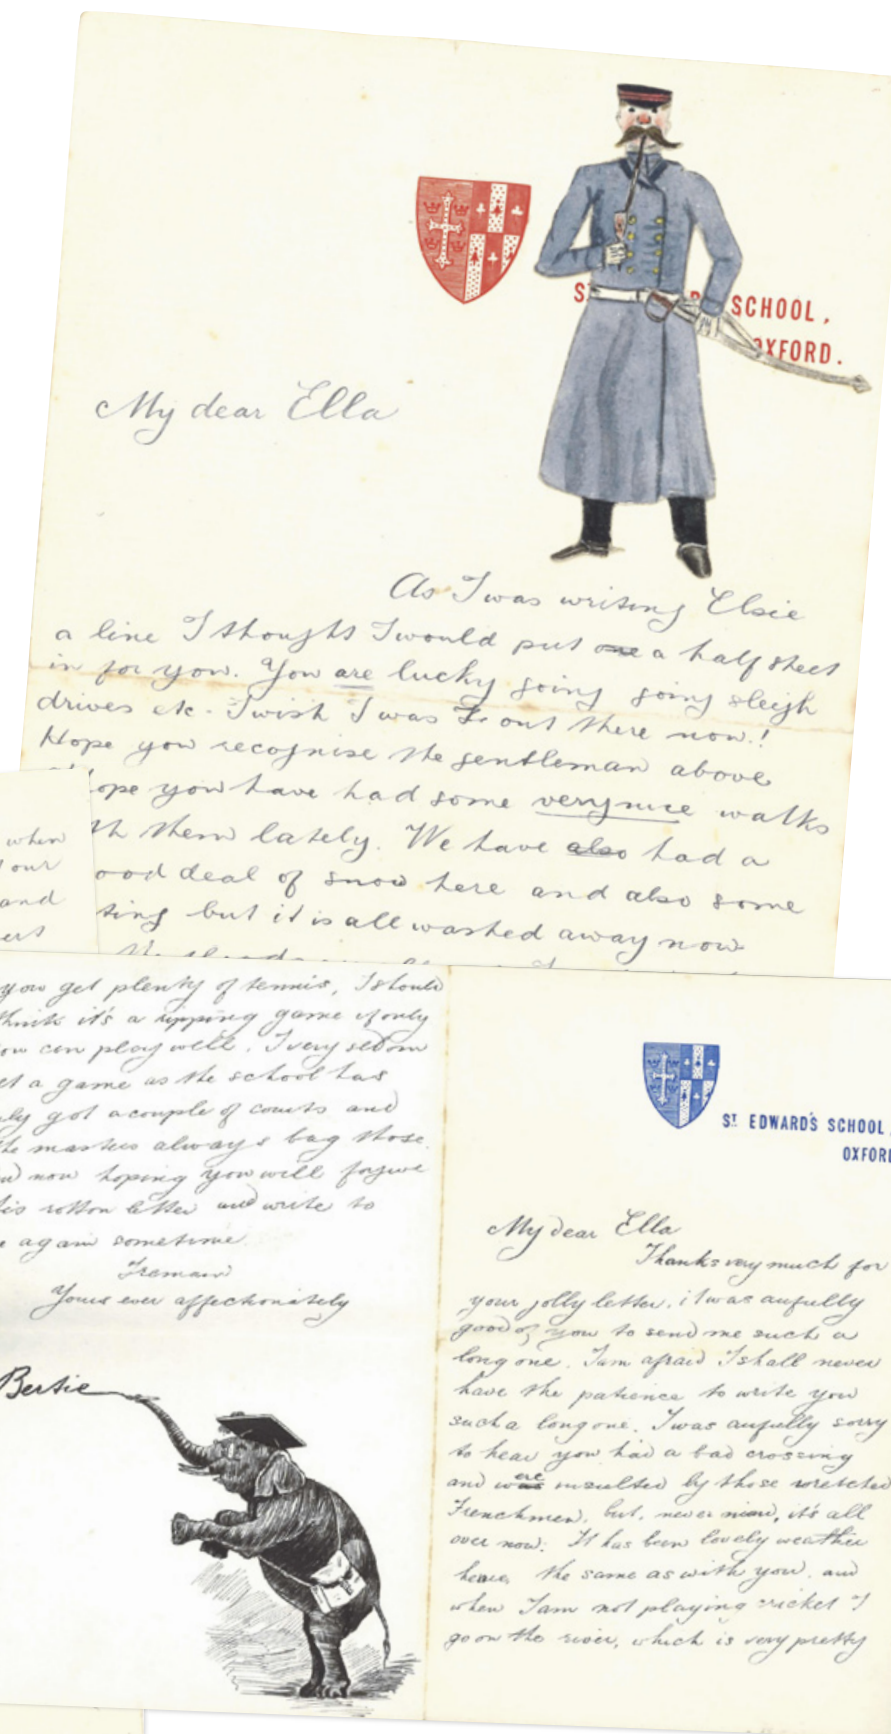 SCHOOL,
OXFORD.
My dear Ella
As I was writing Elsie
a line I thought I would put one a half sheet
in for you. You are lucky going going sleigh
drives etc. I wish I was out there now!
Hope you recognise the gentleman above
ope you have had some very nice walks
th them lately. We have also had a
ood deal of snow here and also some
ting but it is all washed away now
when
our
and
ert
you get plenty of tennis, I should
think it's a ripping game if only
ou can play well. I very seldom
et a game as the school has
ly got a couple of courts and
the masters always bag those.
nd now hoping you will forgive
is rotton letter and write to
e again sometime.
I remain
Yours ever affectionately
Bertie
ST. EDWARD'S SCHOOL,
OXFORD
My dear Ella
Thanks very much for
your jolly letter, it was aufully
good of you to send me such a
long one. I am afraid I shall never
have the patience to write you
such a long one. I was aufully sorry
to hear you had a bad crossing
and were insulted by those wretched
Frenchmen, but, never mind, it's all
over now. It has been lovely weather
here, the same as with you, and
when I am not playing cricket I
go on the river, which is very pretty